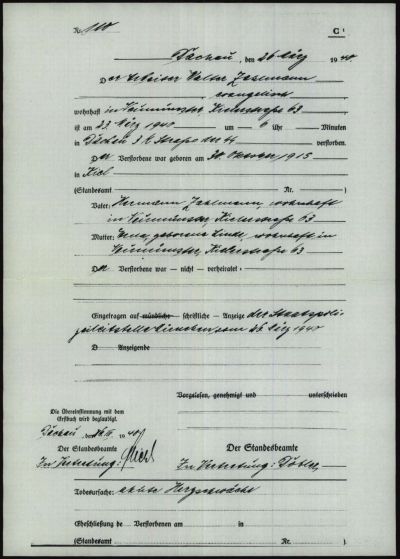 Nr. 110
C¹
Dachau, den 26. März 1940.
Der Arbeiter Walter
evangelisch
wohnhaft in Neumünster, Kielerstraße 63
ist am 23. März 1940 um 6 Uhr Minuten
in Dachau 3 K, Straße der SS verstorben.
Der Verstorbene war geboren am 30. Oktober 1915
in Kiel
(Standesamt Nr. )
Vater: Hermann wohnhaft
in Neumünster, Kielerstraße 63
Mutter: geborene Linde, wohnhaft in
Neumünster, Kielerstraße 63
Der Verstorbene war – nicht – verheiratet
Eingetragen auf mündliche – schriftliche – Anzeige der Staatspoli-
zeileitstelle München vom 26. März 1940
D Anzeigende
Vorgelesen, genehmigt und unterschrieben
Die Übereinstimmung mit dem
Erstbuch wird beglaubigt.
Dachau, den 26. III. 1940
Der Standesbeamte
In Vertretung:
Der Standesbeamte
In Vertretung:
Todesursache: akute Herzschwäche
Eheschließung de Verstorbenen am in
(Standesamt Nr. )